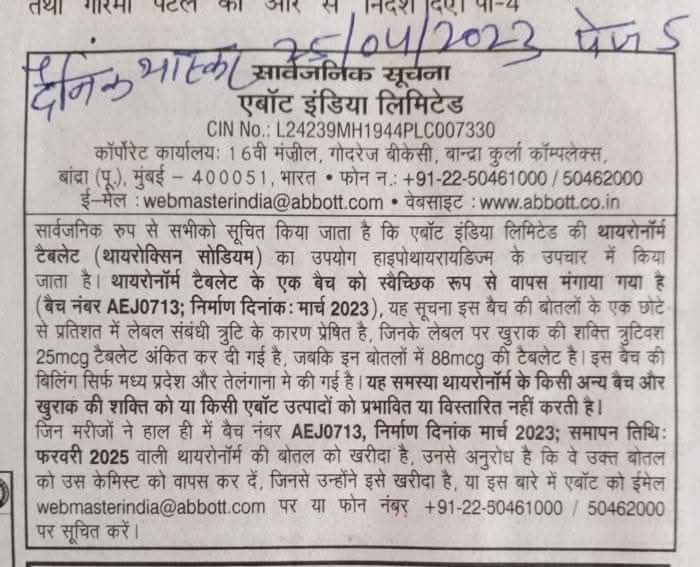 तथा गरिमा पटल की ओर से निर्देश दिए। पी-4
दैनिक भास्कर 25/04/2023 पेज 5
सार्वजनिक सूचना
एबॉट इंडिया लिमिटेड
CIN No.: L24239MH1944PLC007330
कॉर्पोरेट कार्यालय: 16वी मंज़ील, गोदरेज बीकेसी, बान्द्रा कुर्ला कॉम्पलेक्स,
बांद्रा (पू.), मुंबई – 400051, भारत • फोन न.: +91-22-50461000 / 50462000
ई-मेल : webmasterindia@abbott.com • वेबसाइट : www.abbott.co.in
सार्वजनिक रुप से सभीको सूचित किया जाता है कि एबॉट इंडिया लिमिटेड की थायरोनॉर्म
टैबलेट (थायरोक्सिन सोडियम) का उपयोग हाइपोथायरायडिज्म के उपचार में किया
जाता है। थायरोनॉर्म टैबलेट के एक बैच को स्वैच्छिक रूप से वापस मंगाया गया है
(बैच नंबर AEJ0713; निर्माण दिनांक: मार्च 2023), यह सूचना इस बैच की बोतलों के एक छोटे
से प्रतिशत में लेबल संबंधी त्रुटि के कारण प्रेषित है, जिनके लेबल पर खुराक की शक्ति त्रुटिवश
25mcg टैबलेट अंकित कर दी गई है, जबकि इन बोतलों में 88mcg की टैबलेट है। इस बैच की
बिलिंग सिर्फ मध्य प्रदेश और तेलंगाना मे की गई है। यह समस्या थायरोनॉर्म के किसी अन्य बैच और
खुराक की शक्ति को या किसी एबॉट उत्पादों को प्रभावित या विस्तारित नहीं करती है।
जिन मरीजों ने हाल ही में बैच नंबर AEJ0713, निर्माण दिनांक मार्च 2023; समापन तिथि:
फरवरी 2025 वाली थायरोनॉर्म की बोतल को खरीदा है, उनसे अनुरोध है कि वे उक्त बोतल
को उस केमिस्ट को वापस कर दें, जिनसे उन्होंने इसे खरीदा है, या इस बारे में एबॉट को ईमेल
webmasterindia@abbott.com पर या फोन नंबर +91-22-50461000 / 50462000
पर सूचित करें।